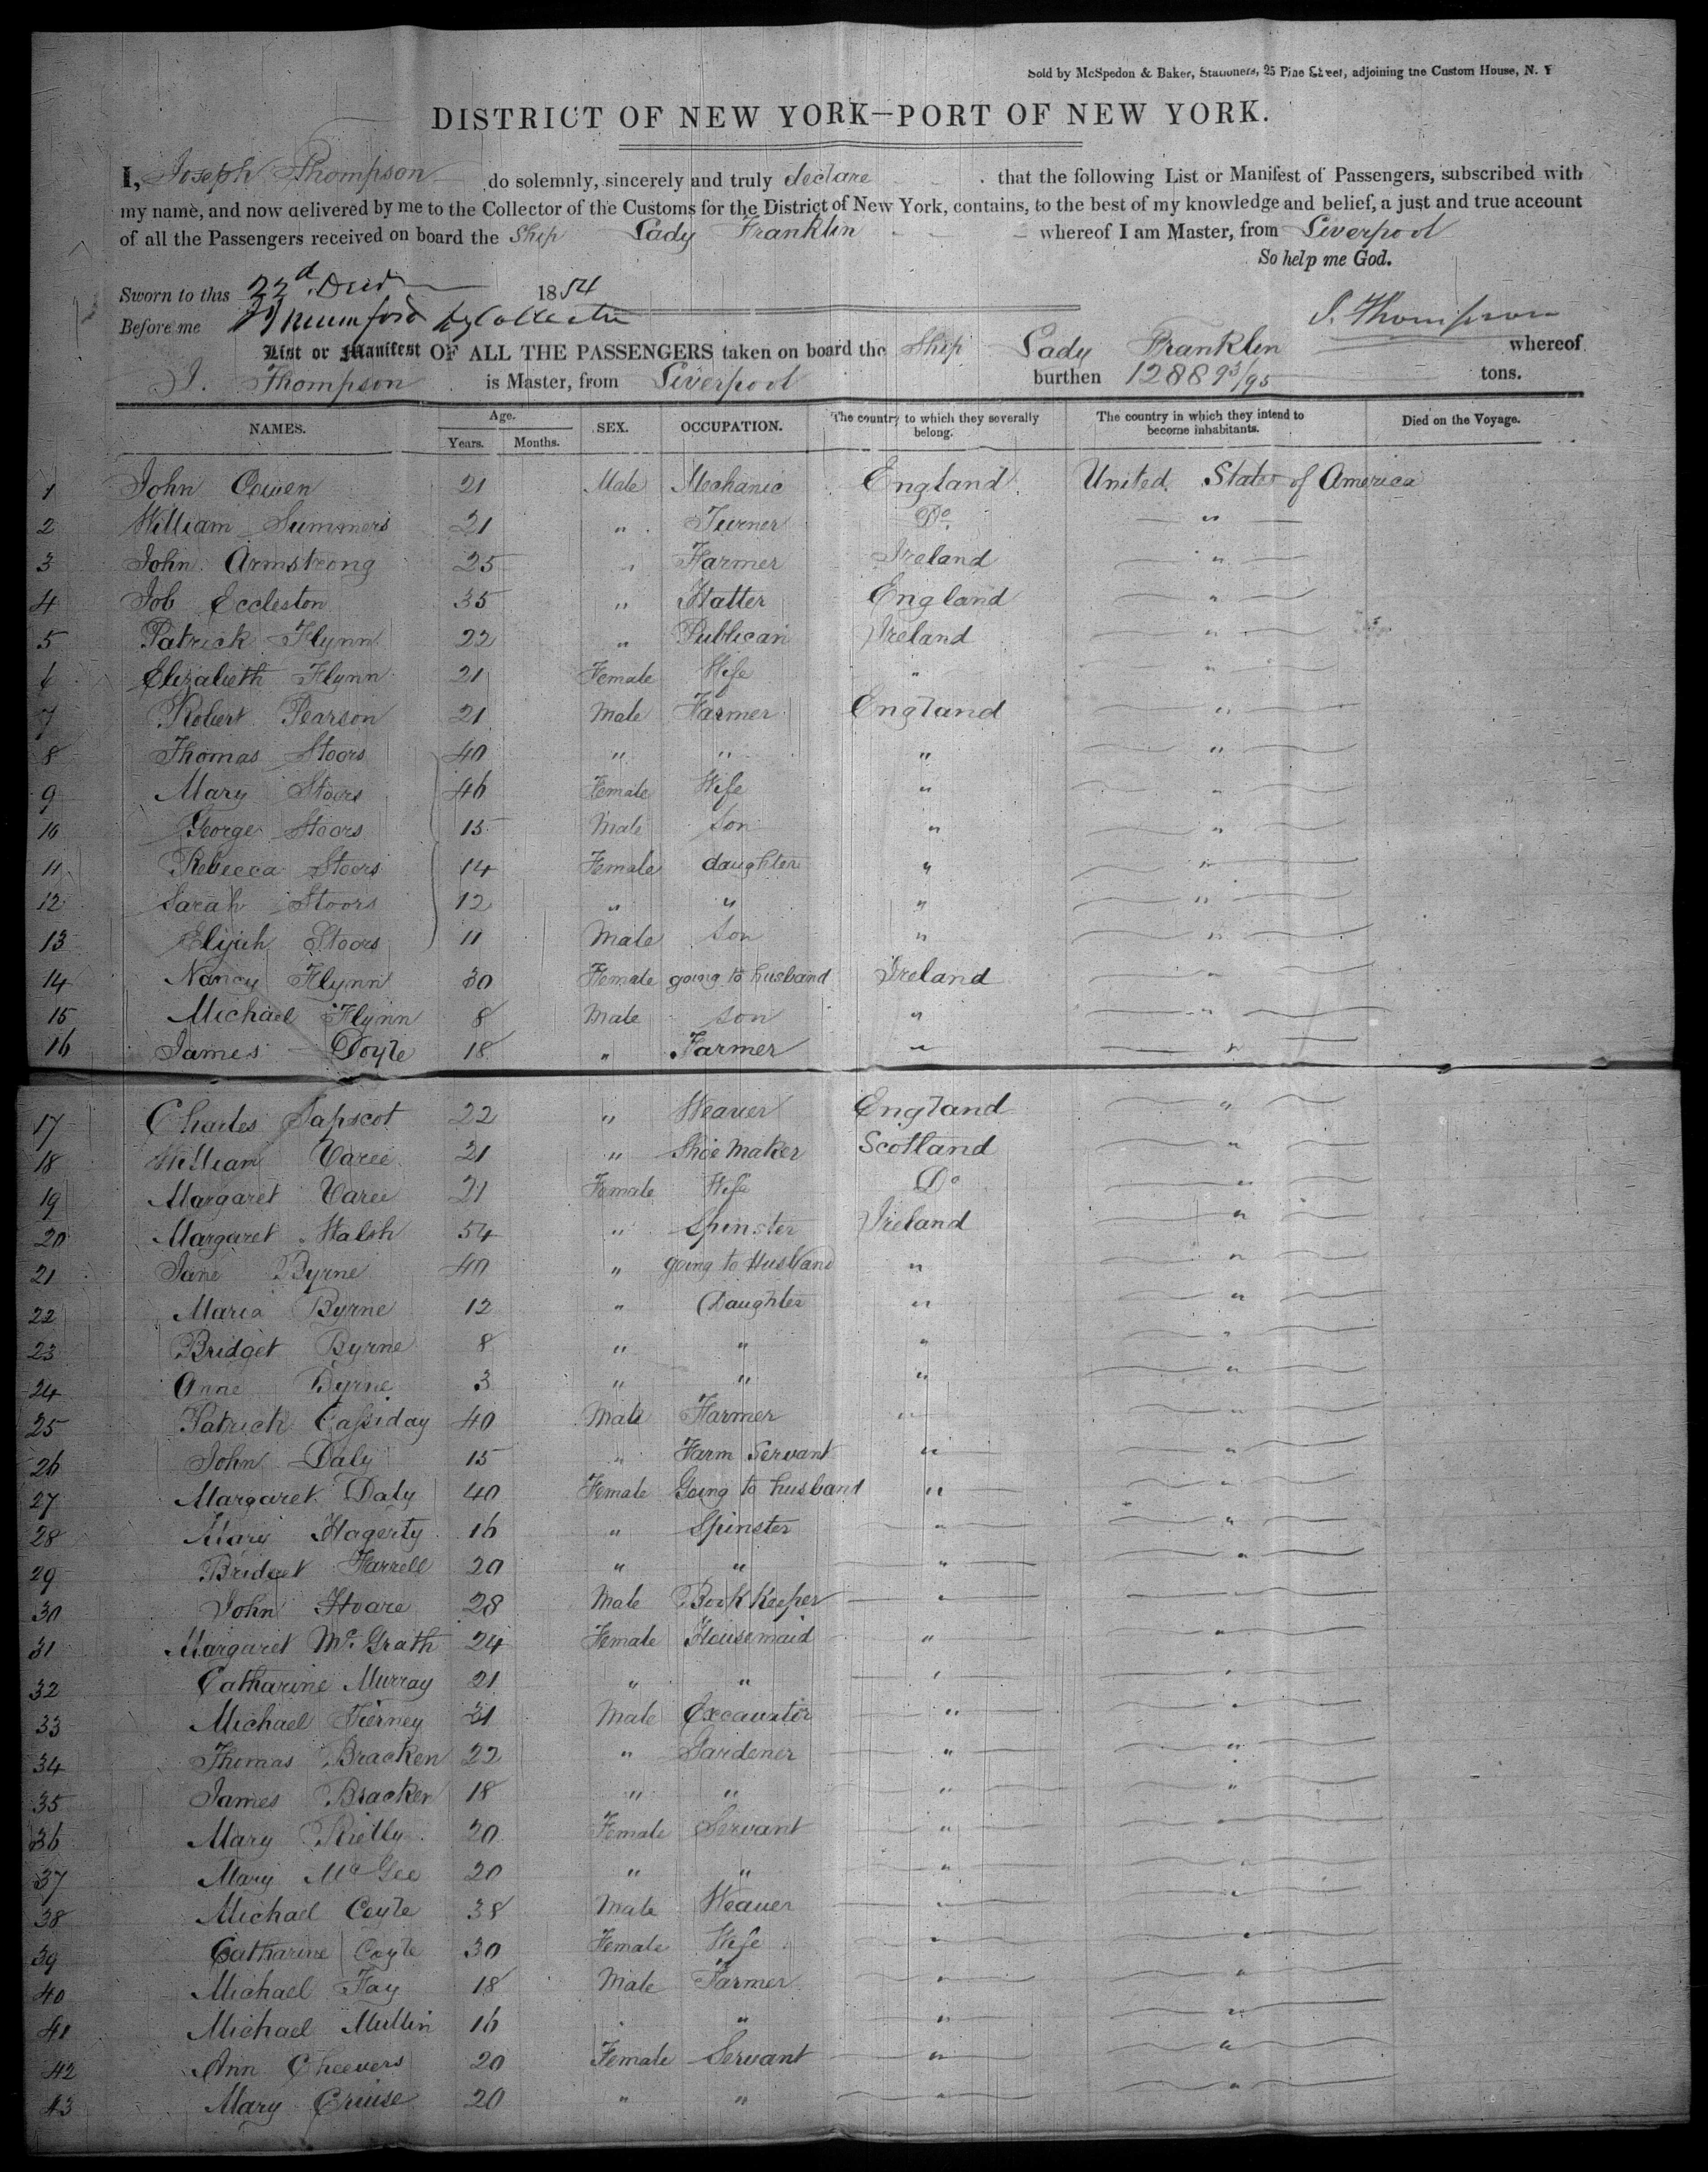 Sold by McSpedon & Baker, Stationers, 25 Pine Street, adjoining the Custom House, N. Y
DISTRICT OF NEW YORK—PORT OF NEW YORK.
I, Joseph Thompson do solemnly, sincerely and truly declare that the following List or Manifest of Passengers, subscribed with
my name, and now delivered by me to the Collector of the Customs for the District of New York, contains, to the best of my knowledge and belief, a just and true account
of all the Passengers received on board the Ship Lady Franklin whereof I am Master, from Liverpool
So help me God.
Sworn to this 22d 1854
J. Thompson
Before me Mumford
List or Manifest OF ALL THE PASSENGERS taken on board the Ship Lady Franklin whereof
J. Thompson is Master, from Liverpool burthen 1288 93/95 tons.
NAMES. Age. Years. Months. SEX. OCCUPATION. The country to which they severally belong. The country in which they intend to become inhabitants. Died on the Voyage.
1 John Cowen 21 Male Mechanic England United States of America
2 William Summers 21 " Turner Do. "
3 John Armstrong 25 " Farmer Ireland "
4 Job Eccleston 35 " Hatter England "
5 Patrick Flynn 22 " Publican Ireland "
6 Elizabeth Flynn 21 Female Wife " "
7 Robert Pearson 21 Male Farmer England "
8 Thomas Stoors 40 " " " "
9 Mary Stoors 46 Female Wife " "
10 George Stoors 15 Male Son " "
11 Rebecca Stoors 14 Female daughter " "
12 Sarah Stoors 12 " " " "
13 Elijah Stoors 11 Male Son " "
14 Nancy Flynn 30 Female going to husband Ireland "
15 Michael Flynn 8 Male son " "
16 James Doyle 18 " Farmer " "
17 Charles Tapscot 22 " Weaver England "
18 William 21 " Shoe Maker Scotland "
19 Margaret 21 Female Wife Do "
20 Margaret Walsh 54 " Spinster Ireland "
21 Jane Byrne 40 " going to Husband " "
22 Maria Byrne 12 " Daughter " "
23 Bridget Byrne 8 " " " "
24 Anne Byrne 3 " " " "
25 Patrick Cassiday 40 Male Farmer " "
26 John Daly 15 " Farm Servant " "
27 Margaret Daly 40 Female Going to husband " "
28 Mary Hagerty 16 " Spinster " "
29 Bridget Farrell 20 " " " "
30 John Hoare 28 Male Book Keeper " "
31 Margaret McGrath 24 Female Housemaid " "
32 Catharine Murray 21 " " " "
33 Michael Tierney 31 Male Excavator " "
34 Thomas Bracken 22 " Gardener " "
35 James Bracken 18 " " " "
36 Mary Rielly 20 Female Servant " "
37 Mary McGee 20 " " " "
38 Michael Coyle 38 Male Weaver " "
39 Catharine Coyle 30 Female Wife " "
40 Michael Fay 18 Male Farmer " "
41 Michael Mullin 16 " " " "
42 Ann Cheevers 20 Female Servant " "
43 Mary Cruise 20 " " " "